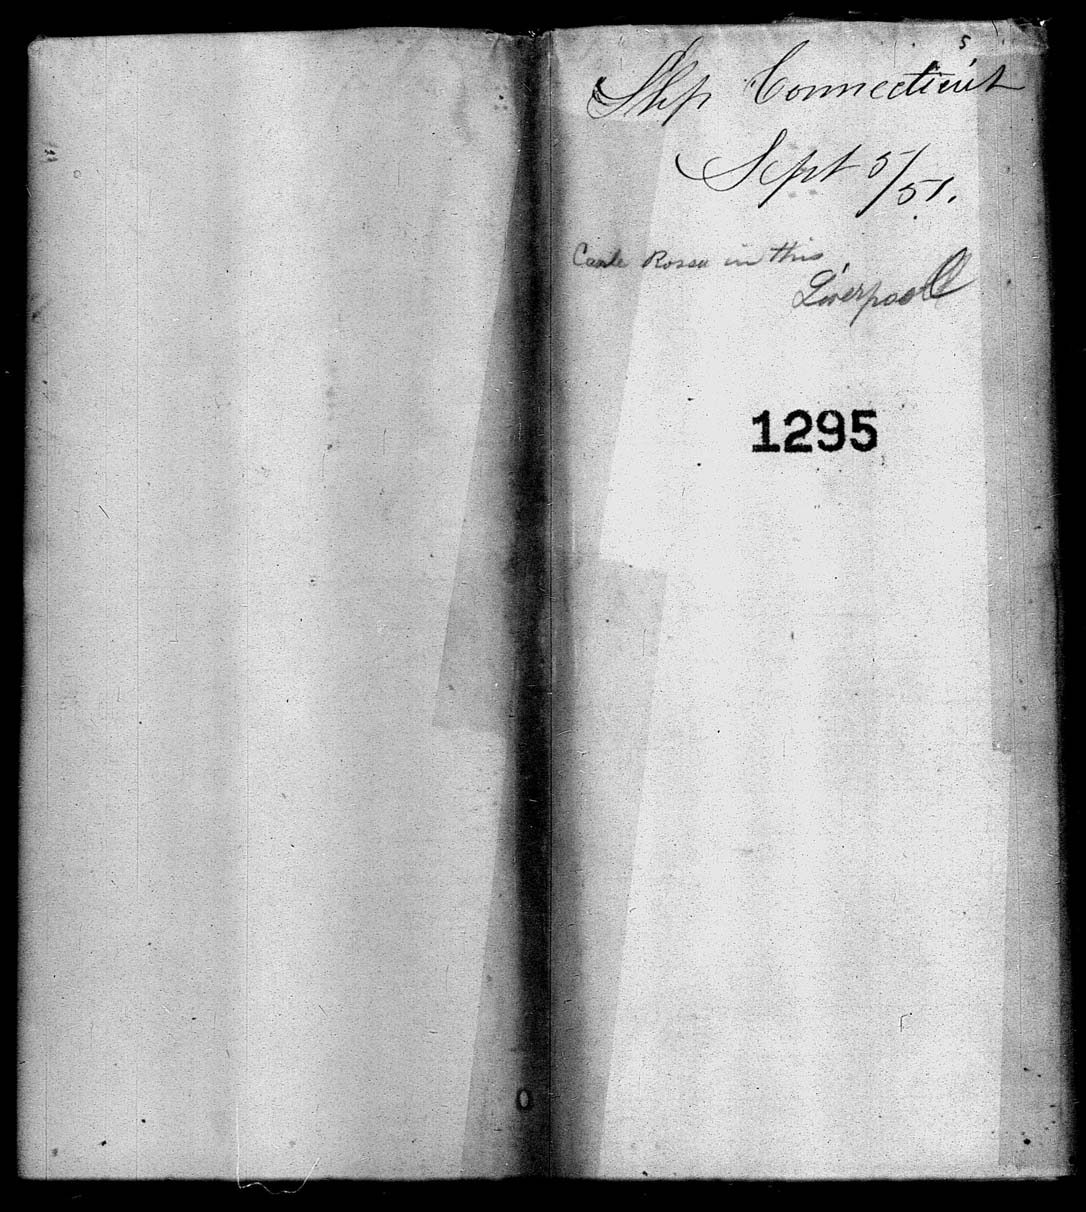 5
Ship Connecticut
Sept 5/51.
Rossa in this
Liverpool
1295
0